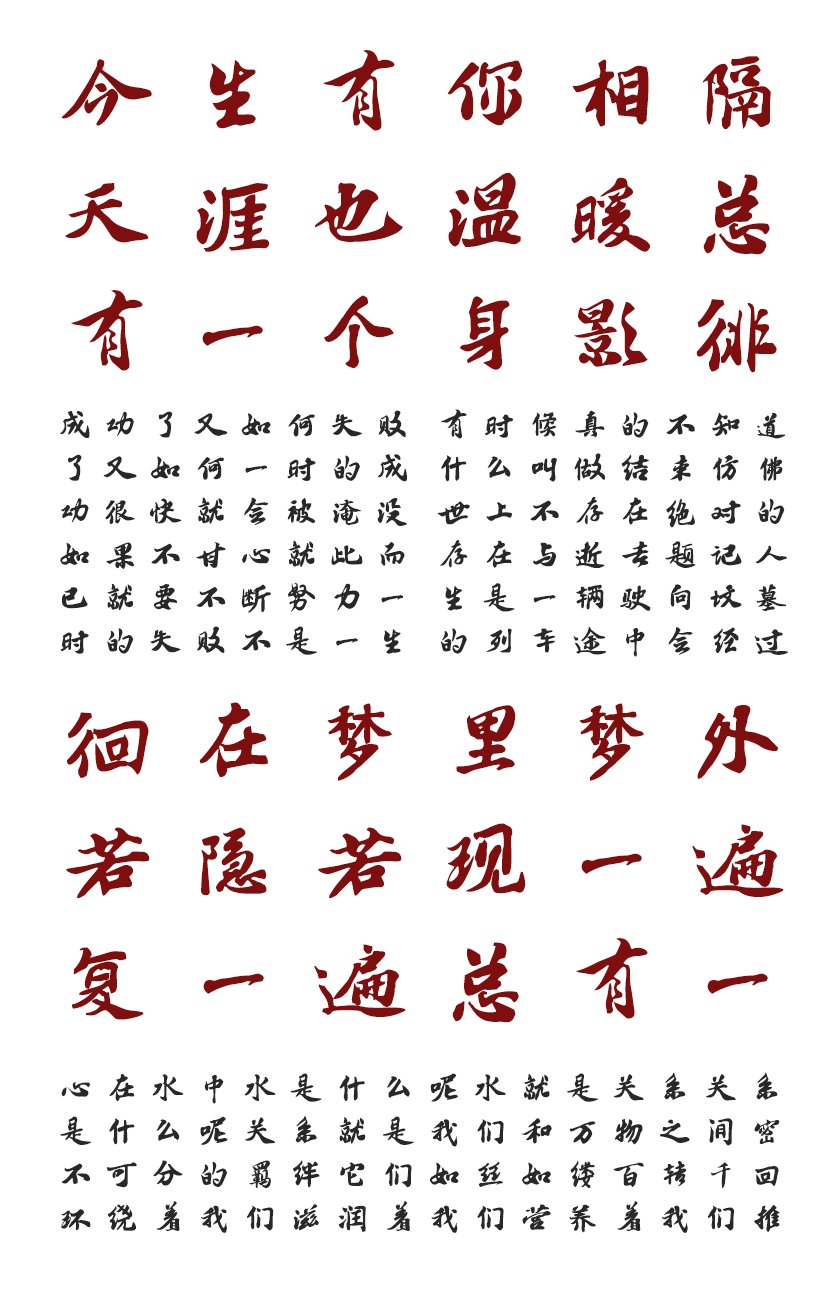 今生有你相隔
天涯也温暖总
有一个身影徘
成功了又如何失败
了又如何一时的成
功很快就会被淹没
如果不甘心就此而
已就要不断努力一
时的失败不是一生
有时候真的不知道
什么叫做结束仿佛
世上不存在绝对的
存在与逝去题记人
生是一辆驶向坟墓
的列车途中会经过
徊在梦里梦外
若隐若现一遍
复一遍总有一
心在水中水是什么呢水就是关系关系
是什么呢关系就是我们和万物之间密
不可分的羁绊它们如丝如缕百转千回
环绕着我们滋润着我们营养着我们推